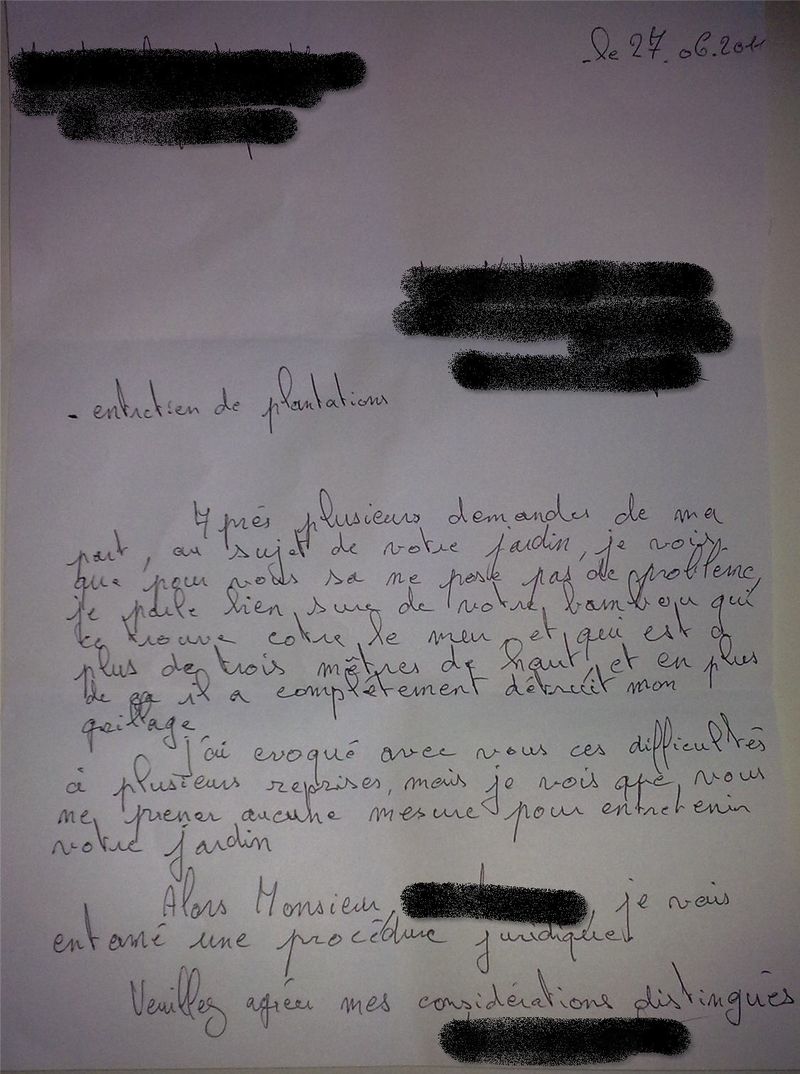 le 27.06.2011
- entretien de plantations
Après plusieurs demandes de ma
part, au sujet de votre jardin, je vois
que pour vous sa ne pose pas de problème,
je parle bien sure de votre bambou qui
ce trouve cotre le meur et qui est a
plus de trois mêtres de haut, et en plus
de ça il a complêtement détruit mon
grillage
j'ai evoqué avec vous ces difficultés
à plusieurs reprises, mais je vois que vous
ne prener aucune mesure pour entretenir
votre jardin
Alors Monsieur je vais
entamé une procédure juridique.
Veuillez agréer mes considérations distingués